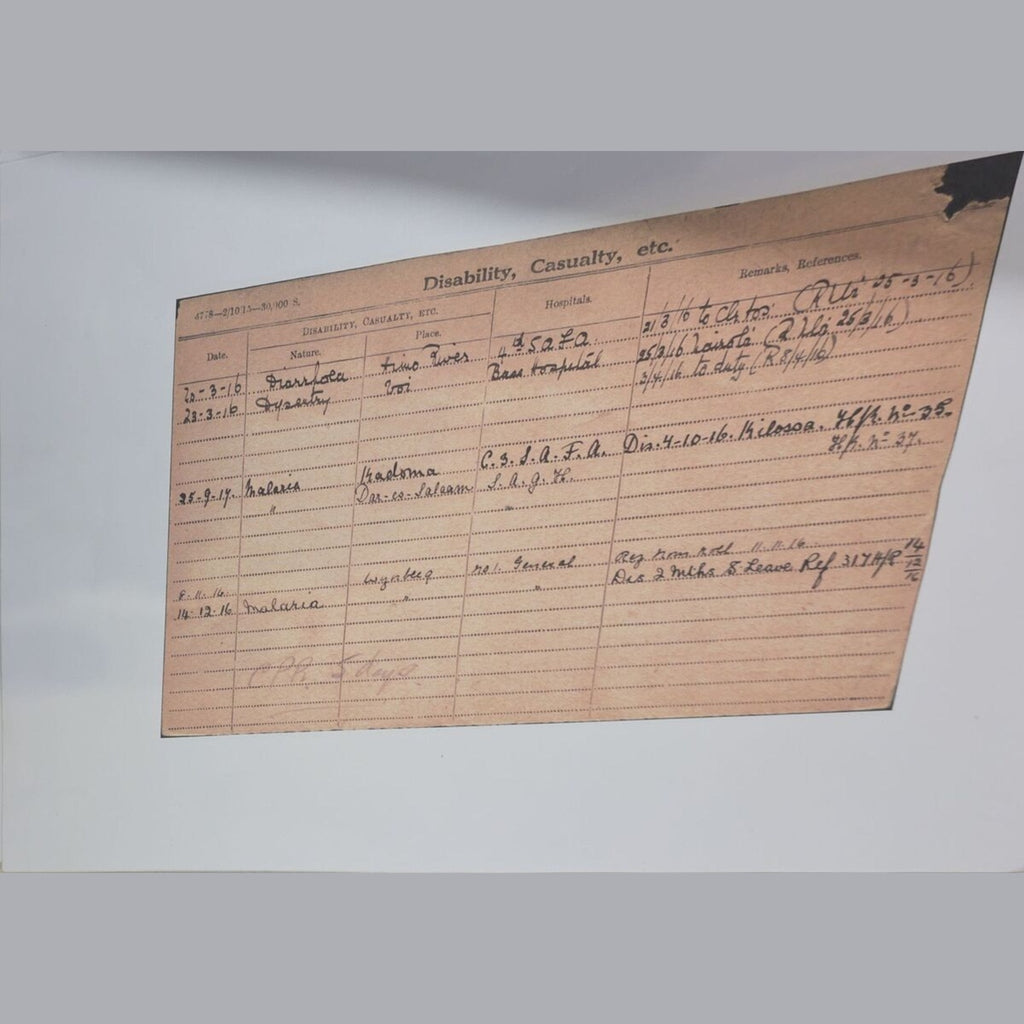 Disability, Casualty, etc.
Disability, Casualty, etc.
Hospitals.
Remarks, References.
Date.
Nature.
Place.
20-3-16 Diarrhoea River 4th S A F A 21/3/16 to (25-3-16)
23-3-16 Dysentry Voi Base Hospital 25/3/16 Nairobi 25/3/16)
3/4/16 to duty (R 8/4/16)
25-9-17. Malaria Kadoma C.3.S.A.F.A. Dis. 4-10-16. Kilossa. H/R. No 35.
" Dar-es-Salaam S.A.G.H. H/R. No 37.
8.11.16. Wynberg No 1. General Roll 11.11.16.
14.12.16 Malaria " " Dis 2 Mths S Leave Ref 317 H/R 14/12/16
5 days